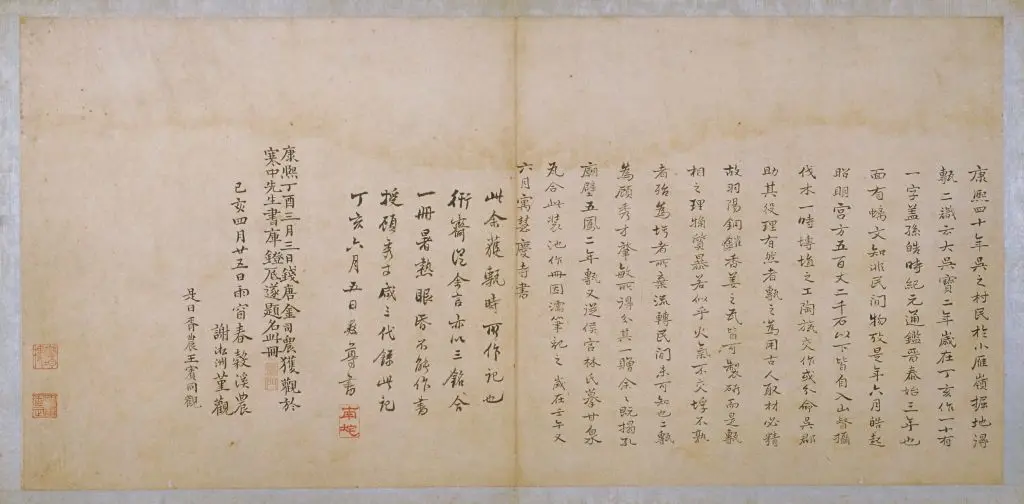 康熙四十年吳之村民於小雁嶺掘地得
甎二識云大吳寶二年歲在丁亥作一十有
一字蓋孫皓時紀元通鑑晉泰始三年也
面有螭文知非民間物攷是年六月皓起
昭明宮方五百丈二千石以下皆自入山督攝
伐木一時摶埴之工陶旊交作或分命吳郡
助其役理有然者甎之為用古人取材必精
故羽陽銅雀香姜之瓦皆可製硯而是甎
相之理觕薜暴者似乎火氣不交埒不孰
者殆為坊者所棄流轉民間未可知也二甎
為顧秀才肇敏所得分其一贈余余既搨孔
廟壁五鳳二年甎又從侯官林氏摹甘泉
瓦合此裝池作冊因濡筆記之歲在壬午又
六月寓慧慶寺書
此余獲甎時所作記也
衍齋從舍言亦以三銘合
一冊暑熱眼昏不能作書
授碩秀才咸三代錄此記
丁亥六月五日彝尊書
南垞
康熙丁酉三月三日錢唐金司農獲觀於
寒中先生書庫鐙底遂題名此冊
己亥四月廿五日雨窗春穀溪農
謝淞洲堇觀
是日胥農王賓同觀